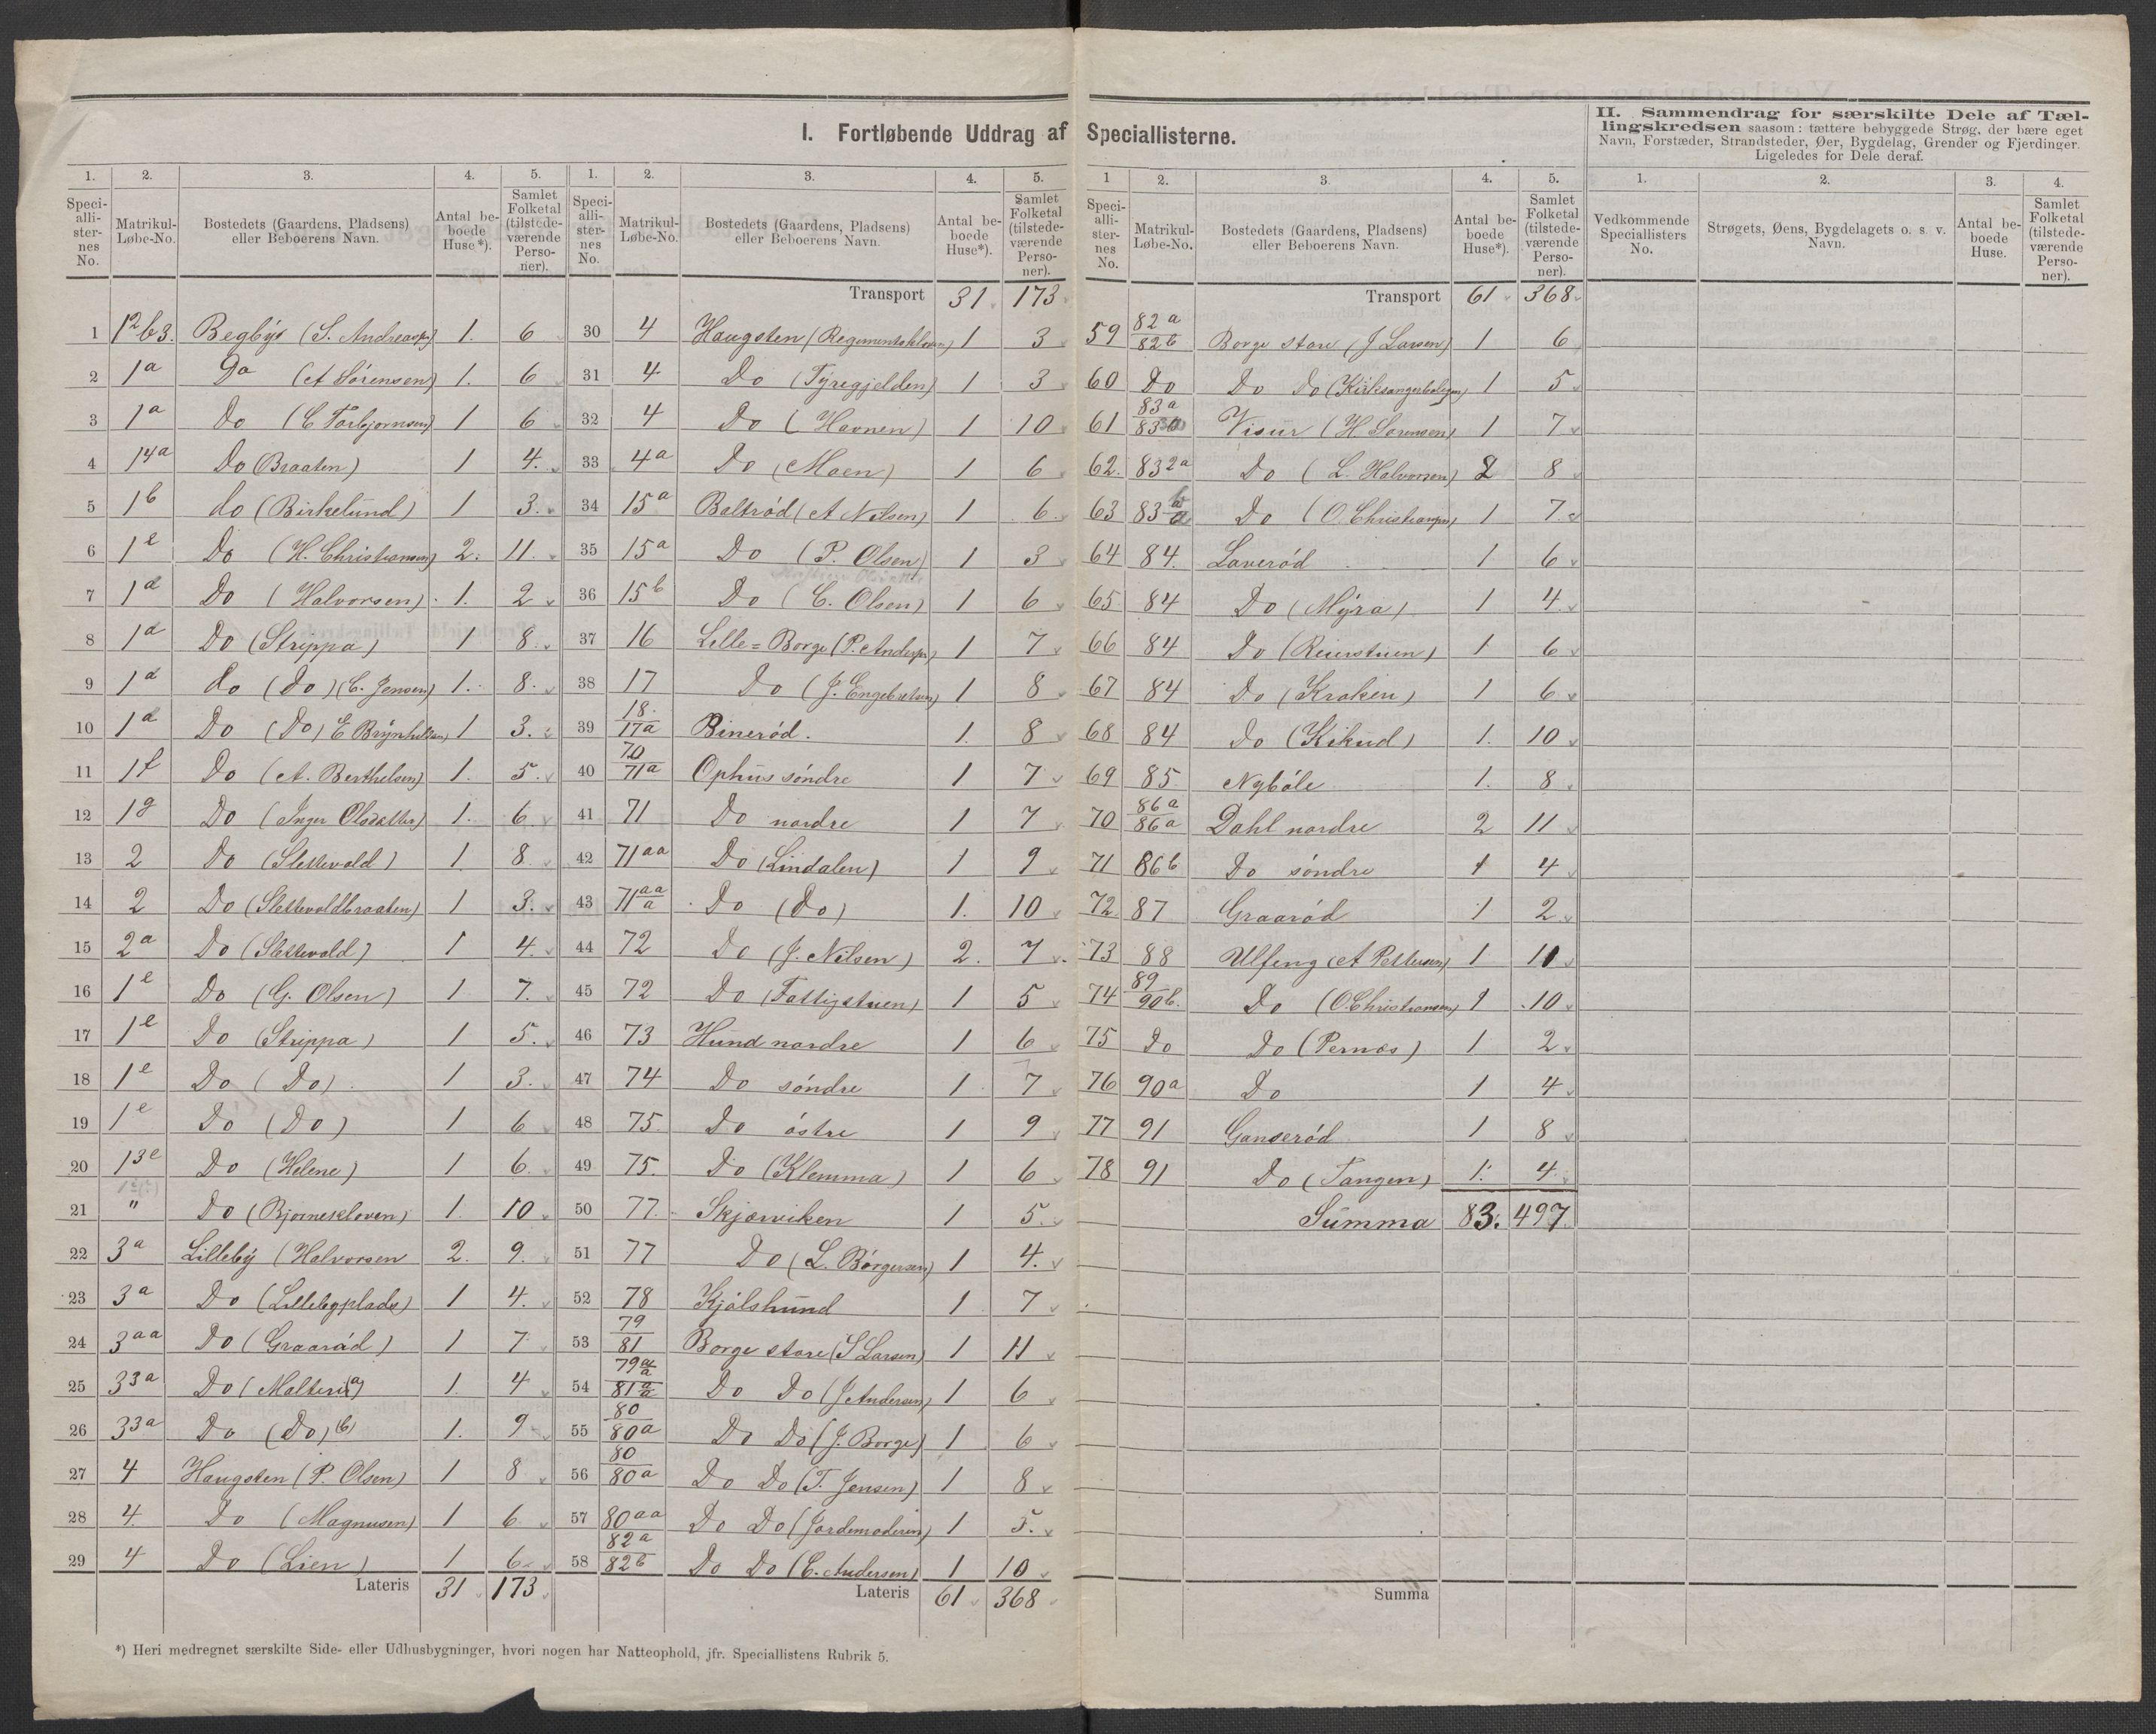 I. Fortløbende Uddrag af Speciallisterne.
II. Sammendrag for særskilte Dele af Tællingskredsen saasom: tættere bebyggede Strøg, der bære eget
Navn, Forstæder, Strandsteder, Øer, Bygdelag, Grender og Fjerdinger.
Ligeledes for Dele deraf.
1. 2. 3. 4. 5.
Speciallisternes No. Matrikul-Løbe-No. Bostedets (Gaardens, Pladsens) eller Beboerens Navn. Antal beboede Huse*). Samlet Folketal (tilstedeværende Personer).
1 12b3. Begbÿ (S. Andreasen) 1. 6
2 1a Do (A Sörensen) 1. 6
3 1a Do (C Torbjornsen) 1 6
4 14a Do (Braaten) 1 4.
5 1b do (Birkelund) 1 3.
6 1e Do (H. Christiansen) 2. 11.
7 1d Do (Halvorsen) 1. 2
8 1d Do (Strippa) 1 8
9 1d do (do) (C. Jensen) 1. 8.
10 1d Do (Do) E Brÿnhildsen) 1 3.
11 1f Do (A. Berthelsen) 1. 5.
12 1g Do (Inger Olsdatter) 1. 6
13 2 Do (Slettevold) 1. 8
14 2 Do (Slettevoldbraaten) 1 3.
15 2a Do (Slettevold) 1 4.
16 1e Do (G. Olsen) 1 7.
17 1e Do (Strippa) 1 5.
18 1e Do (Do) 1 3.
19 1e Do (Do) 1 6
20 13e Do (Helene) 1 6.
21 " Do (Bjorneskloven) 1. 10
22 3a Lillebÿ (Halvorsen 2. 9.
23 3a Do (Lillebyplads) 1 4.
24 3aa Do (Graaröd) 1 7
25 33a Do (Malteri(a) 1. 4
26 33a Do (Do) (b) 1. 9
27 4 Haugsten (P. Olsen) 1 8
28 4. Do (Magnusen) 1 6
29 4 Do (Lien) 1 6
Lateris 31 173
1. 2. 3. 4. 5.
Speciallisternes No. Matrikul-Løbe-No. Bostedets (Gaardens, Pladsens) eller Beboerens Navn. Antal beboede Huse*). Samlet Folketal (tilstedeværende Personer).
Transport 31 173
30 4 Haugsten 1 3
31 4 Do (Tÿregjelden) 1 3
32 4 Do (Havnen) 1 10
33 4a Do (Moen) 1 6
34 15a Boltröd (A Nilsen) 1 6
35 15a Do (P. Olsen) 1 3
36 15b Do (C. Olsen) 1 6
37 16 Lille=Borge (P. Andersen) 1 7
38 17 Do (J. Engebretsen) 1 8
39 18. 17a Bineröd. 1. 8
40 70 71a Ophus söndre 1 7
41 71 Do nordre 1 7
42 71aa Do (Lindalen) 1 9
43 71aa a Do (do) 1. 10
44 72 Do (J. Nilsen) 2. 7
45 72 Do (Fattigstuen) 1 5
46 73 Hund nordre 1 6
47 74 Do söndre 1 7
48 75. Do östre 1 9
49 75. Do (Klemma) 1 6
50 77. Skjærviken 1 5.
51 77 Do (L. Börgersen) 1 4.
52 78 Kjölshund 1 7
53 79 81 Borge store (S Larsen) 1 11
54 79a a 81a a Do Do (J Andersen) 1 6
55 80 80a Do Do (J. Borge) 1 6
56 80 80a Do Do (T. Jensen) 1 8
57 80aa Do Do (Jordemoderen) 1 5.
58 82a 82b Do Do (C. Andersen) 1 10
Lateris 61 368
1 2. 3. 4. 5.
Speciallisternes No. Matrikul-Løbe-No. Bostedets (Gaardens, Pladsens) eller Beboerens Navn. Antal beboede Huse*). Samlet Folketal (tilstedeværende Personer).
Transport 61 368
59 82a 82b Borge store (J Larsen) 1 6
60 Do Do Do (Kirkesangerboligen) 1 5
61 83a Visur (H Sörensen) 1 7
62. 832a Do (L. Halvorsen) 2 8
63 83 Do (O. Christiansen) 1 7.
64 84. Laveröd 1 6
65 84 Do (Mÿra) 1 4
66 84 Do 1 6
67 84 Do (Kroken) 1 6
68 84 Do (Kikud) 1. 10
69 85. Nyböle 1. 8
70 86a 86a Dahl nordre 2 11
71 86b Do söndre 1 4
72. 87 Graaröd 1 2
73 88 Ulfeng (A Pettersen) 1 11
74 89 90b. Do (O. Christiansen) 1 10
75 Do Do (Pernæs) 1 2
76 90a Do 1 4
77 91 Ganseröd 1 8
78 91 Do (Tangen) 1. 4.
Summa 83. 497.
Summa
1. 2. 3. 4.
Vedkommende Speciallisters No. Strøgets, Øens, Bygdelagets o. s. v. Navn. Antal beboede Huse. Samlet Folketal (tilstedeværende Personer).
*) Heri medregnet særskilte Side- eller Udhusbygninger, hvori nogen har Natteophold, jfr. Speciallistens Rubrik 5.